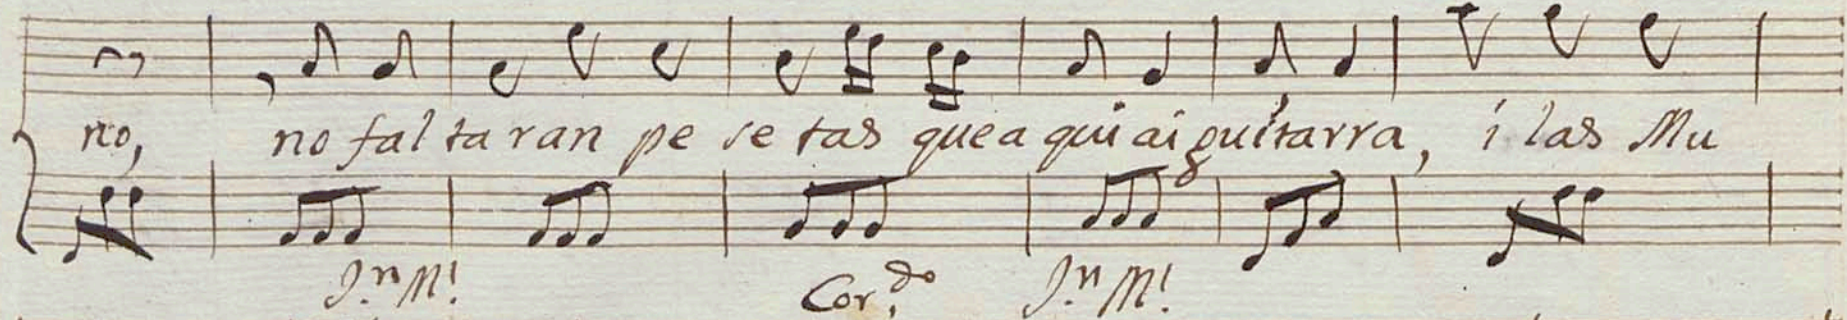 no, no fal ta ran pe se tas que a qui ai guitarra, i las Mu
J.n M! Cor.do J.n M!